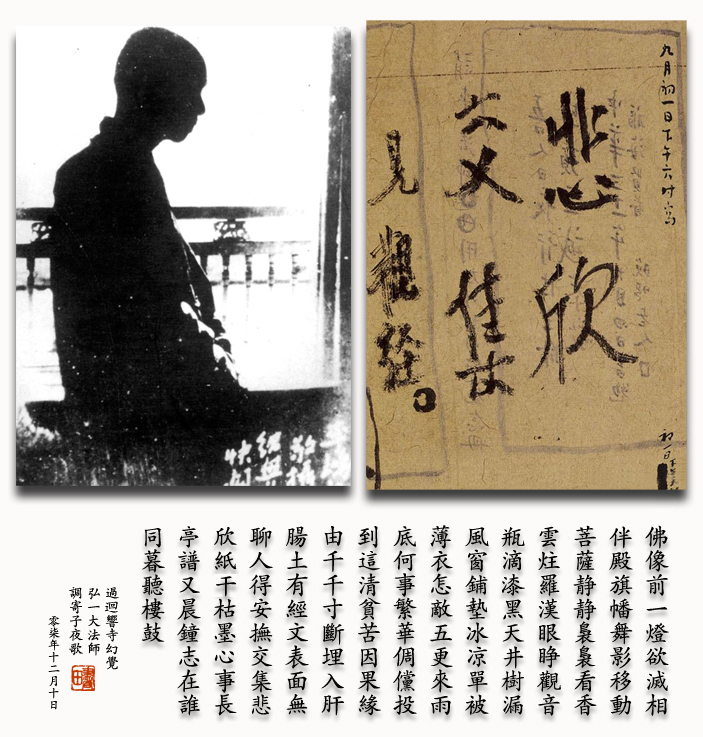 九月初一日下午六时写
悲欣
交集
見觀经
初一日
佛像前一燈欲滅相
伴殿旗幡舞影移動
菩薩静静裊裊看香
雲炷羅漢眼睁觀音
瓶滴漆黑天井樹漏
風窗鋪墊冰凉單被
薄衣怎敵五更來雨
底何事繁華倜儻投
到這清貧苦因果緣
由千千寸斷埋入肝
腸土有經文表面無
聊人得安撫交集悲
欣紙干枯墨心事長
亭譜又晨鐘志在誰
同暮聽樓鼓
過迴響寺幻覺
弘一大法師
調寄子夜歌
零柒年十二月十日